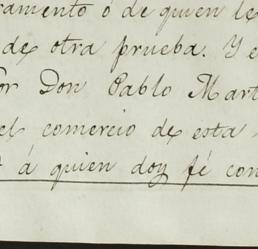 ramento ó de quien le
de otra prueba. Y e
or Don Pablo Mart
el comercio de esta
á quien doy fé con